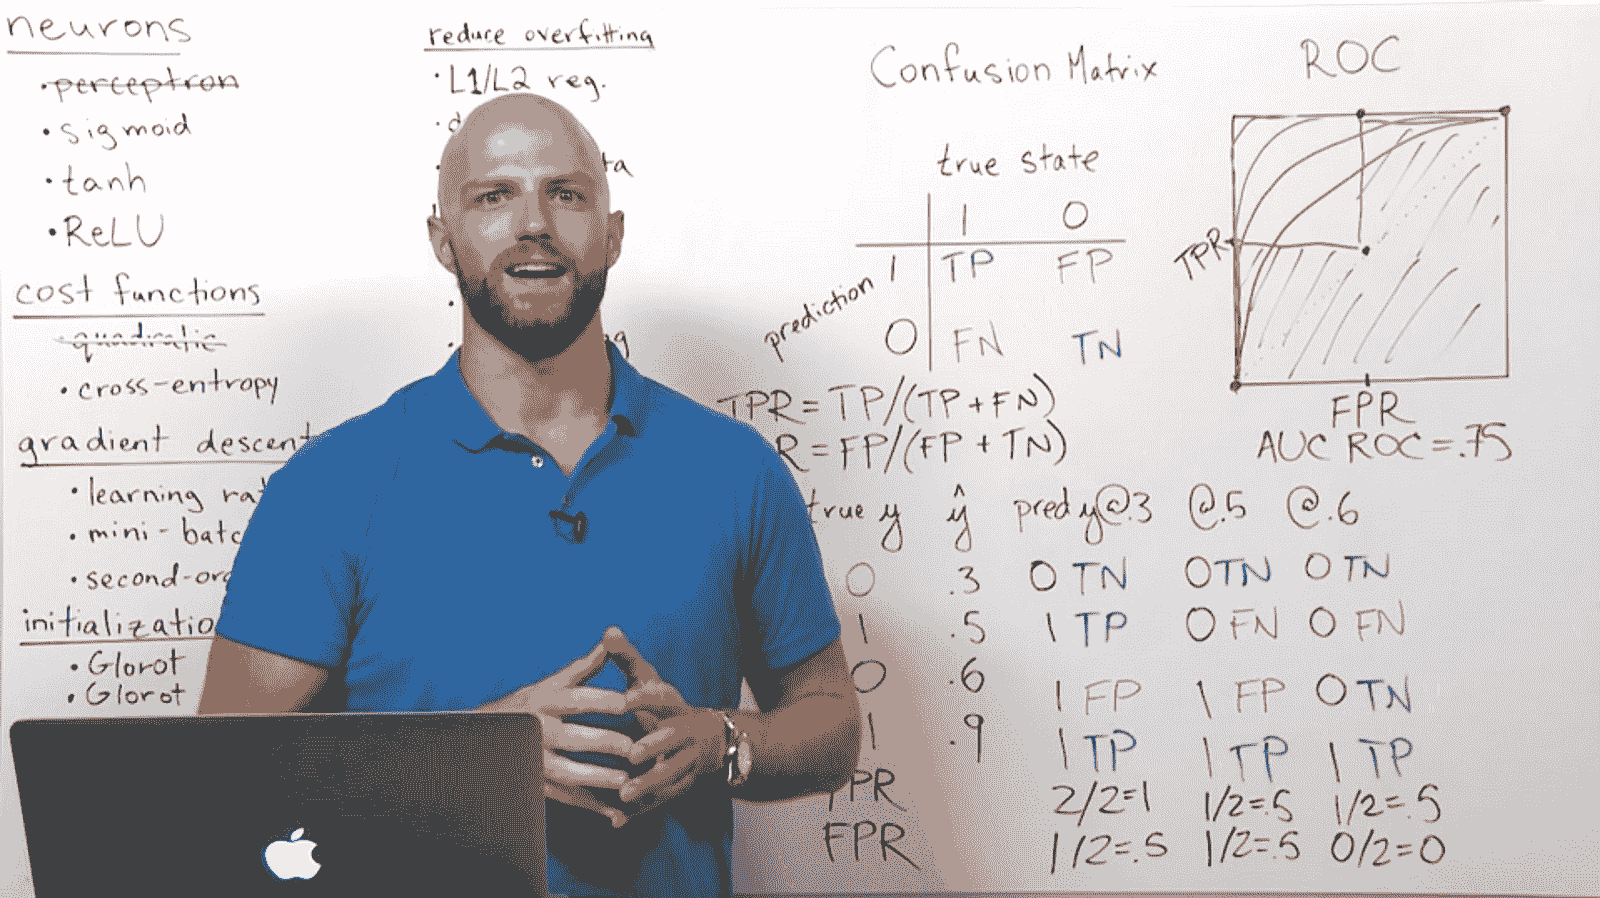 neurons
• perceptron
• sigmoid
• tanh
• ReLU
cost functions
• quadratic
• cross-entropy
gradient descent
• learning
• mini-batc
• second-or
initializatio
• Glorot
• Glorot
reduce overfitting
• L1/L2 reg.
Confusion Matrix
true state
1 0
prediction
1 TP FP
0 FN TN
TPR = TP/(TP + FN)
R = FP/(FP + TN)
ROC
TPR
FPR
AUC ROC = .75
true y ŷ pred y@.3 @.5 @.6
0 .3 0 TN 0 TN 0 TN
1 .5 1 TP 0 FN 0 FN
0 .6 1 FP 1 FP 0 TN
1 .9 1 TP 1 TP 1 TP
TPR 2/2=1 1/2=.5 1/2=.5
FPR 1/2=.5 1/2=.5 0/2=0